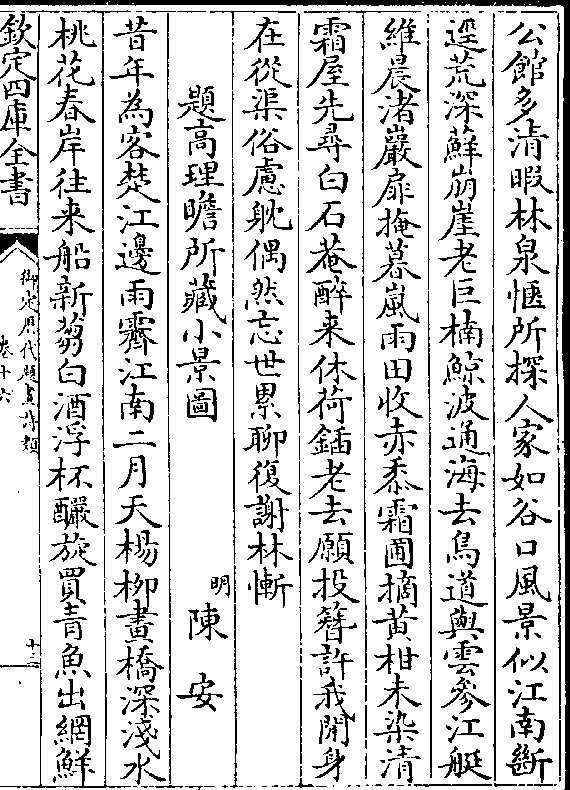 公館多清暇林泉愜所探人家如谷口風景似江南斷
逕荒深蘚崩崖老巨楠鯨波通海去鳥道與雲參江艇
維晨渚巖扉掩暮嵐雨田收赤黍霜圃摘黄柑未染清
霜屋先尋白石菴醉来休荷鍤老去願投簪許我閒身
在從渠俗慮躭偶然忘世累聊復謝林慚
題高理瞻所藏小景圖
明 陳安
昔年為客楚江邊雨霽江南二月天楊柳畫橋深淺水
桃花春岸往来船新蒭白酒浮杯釅旋買青魚出網鮮
欽定四庫全書
御定歴代題畫詩類
卷十六
十三